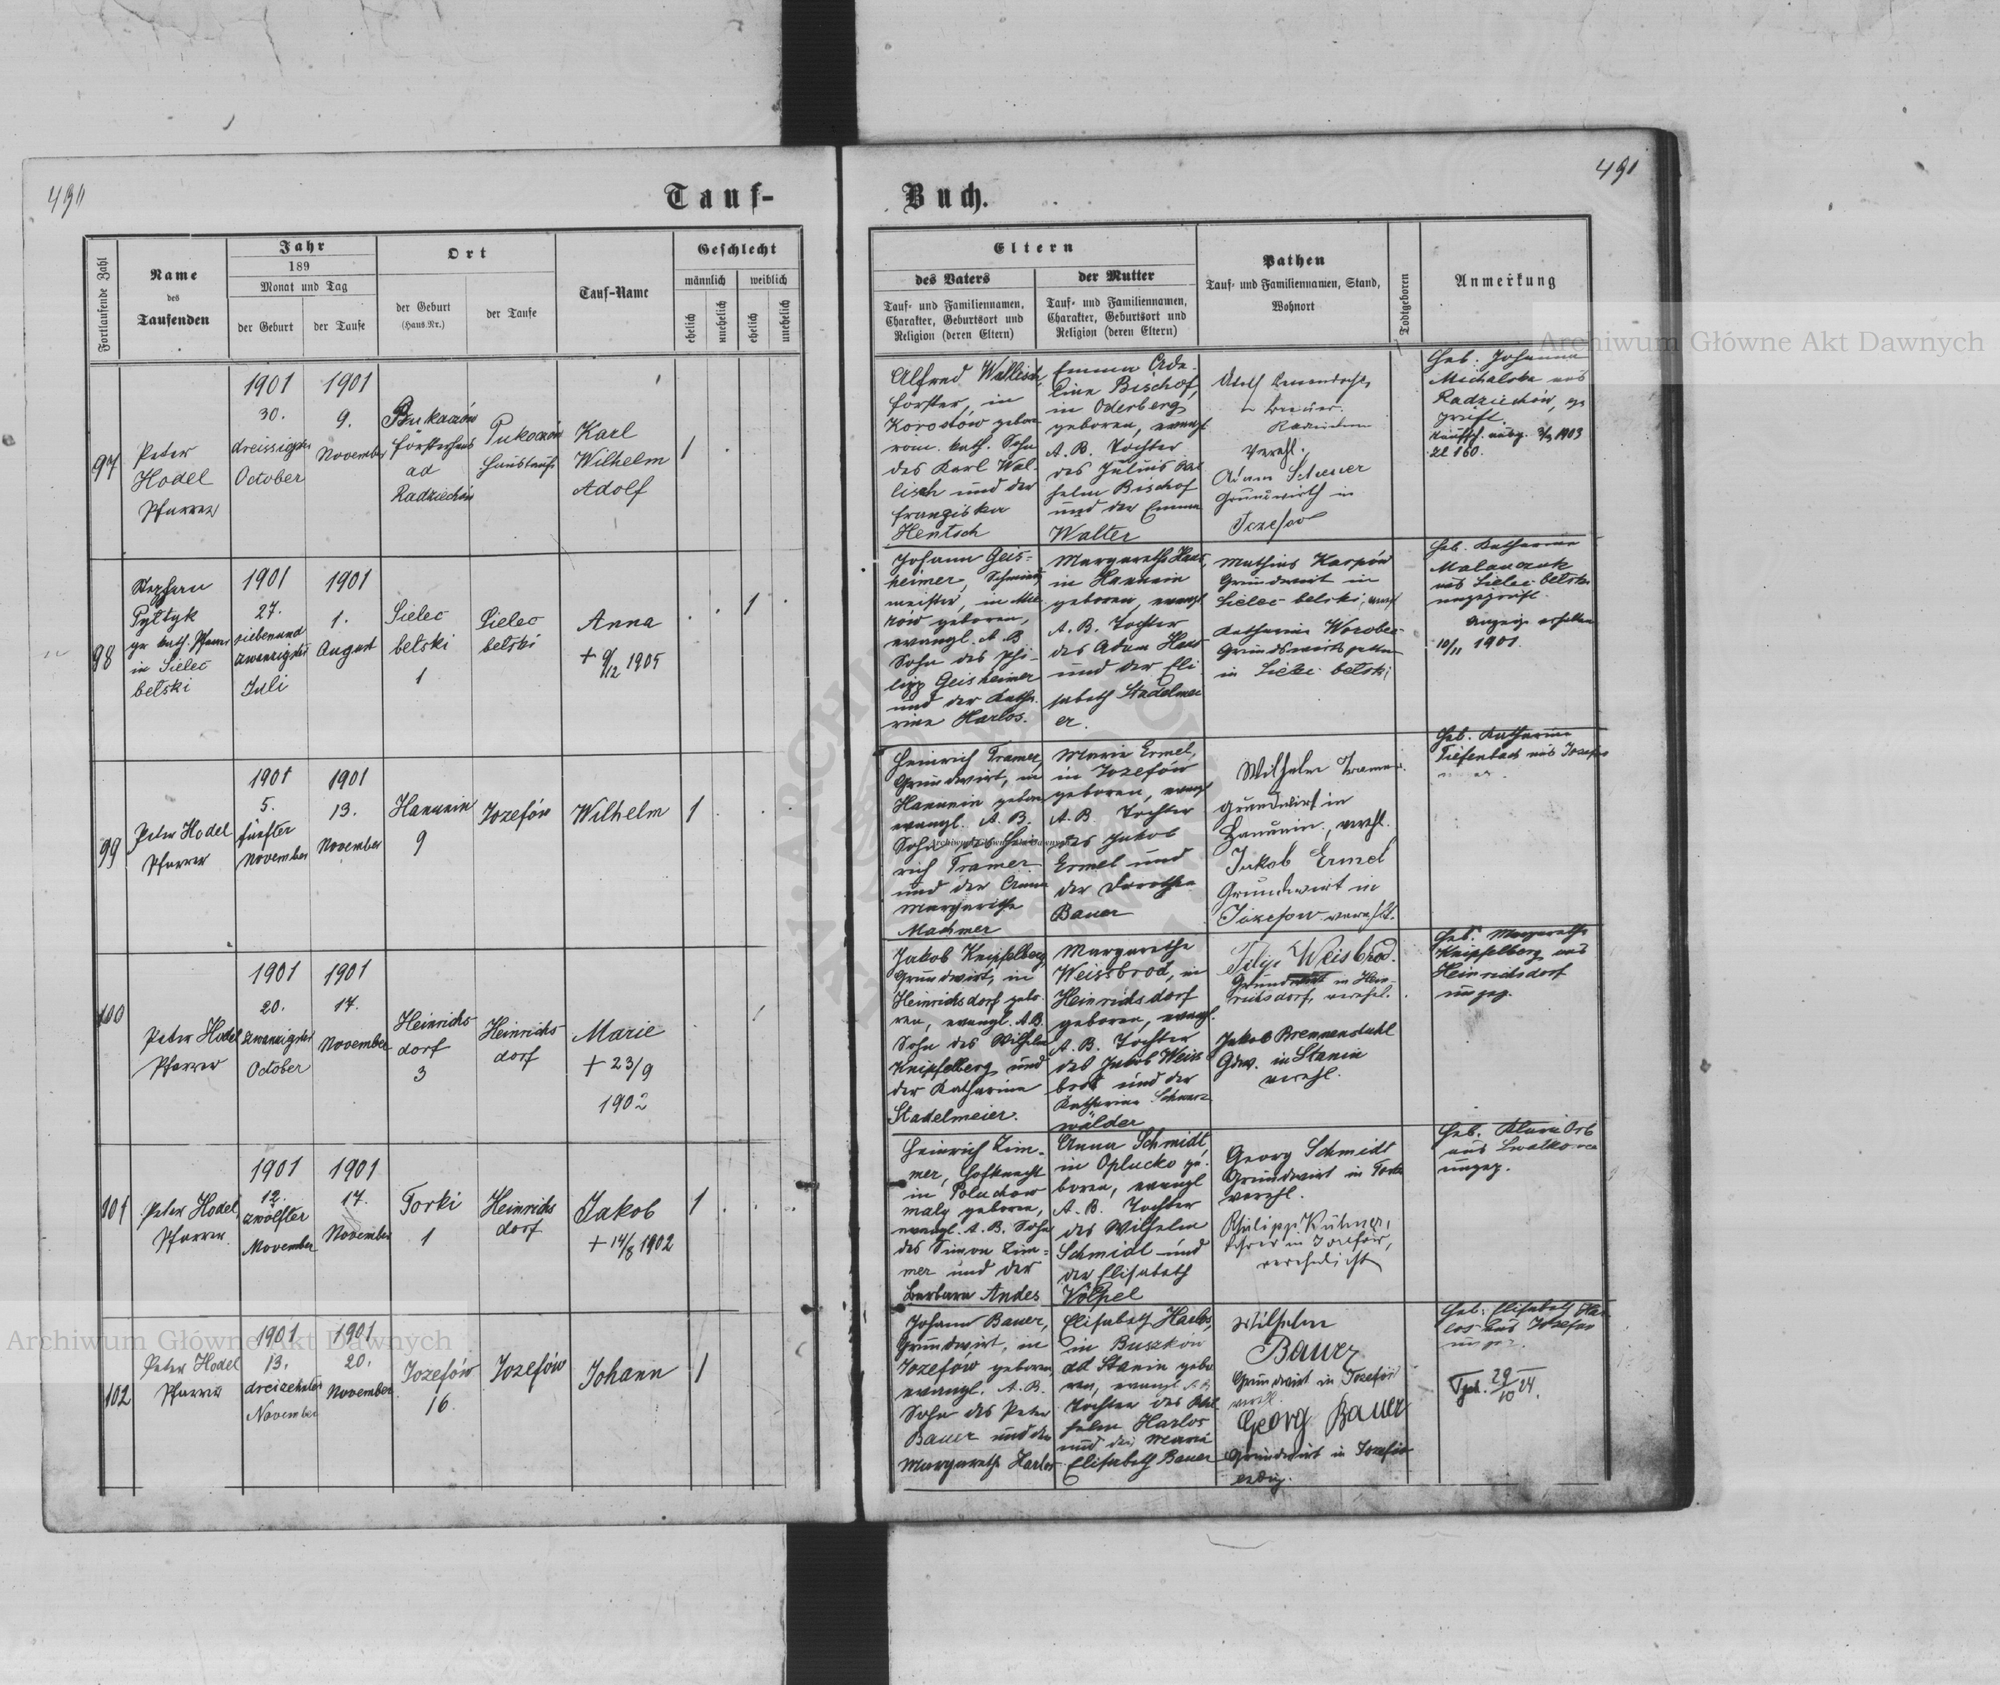 491
Tauf-
Buch.
Fortlaufende Zahl
Name
des
Taufenden
Jahr
189
Monat und Tag
der Geburt
der Taufe
Ort
der Geburt
(Haus-Nr.)
der Taufe
Tauf-Name
Geschlecht
männlich
weiblich
ehelich
unehelich
ehelich
unehelich
Eltern
des Vaters
Tauf- und Familiennamen,
Charakter, Geburtsort und
Religion (deren Eltern)
der Mutter
Tauf- und Familiennamen,
Charakter, Geburtsort und
Religion (deren Eltern)
Pathen
Tauf- und Familiennamen, Stand,
Wohnort
Todtgeboren
Anmerkung
Archiwum Główne Akt Dawnych
97
Peter
Hodel
Pfarrer
1901
30.
dreissigster
October
1901
9.
November
Försterhaus
ad
Radziechów
Haustaufe
Karl
Wilhelm
Adolf
1
Alfred Wallisch,
Förster, in
Korostow geboren
röm. kath. Sohn
des Karl Wal-
lisch und der
Franziska
Hentsch
Emma Ade-
line Bischof,
in Oderberg
geboren, evangl
A. B. Tochter
des Julius Wil
helm Bischof
und der Emma
Walter
Adolf
verehl.
Adam
Grundwirth in
Jozefow
Heb. Johanna
Michalska aus
Radziechów, ge
prüft.
3/3 1903
Zl 160.
98
Stephan
Pyltyk
gr. kath. Pfarrer
in Sielec
bełski
1901
27.
siebenund
zwanzigster
Juli
1901
1.
August
Sielec
bełski
1
Sielec
bełski
Anna
+ 9/12 1905
1
Johann Geis-
heimer, Schmied
meister, in
geboren,
evangl. A. B
Sohn des Phi-
lipp Geisheimer
und der Katha
rina Harlos.
Margaretha Haas
in Hanunin
geboren, evangl
A. B. Tochter
des Adam Haas
und der Eli
sabeth Stadelmei
er.
Mathias Karpów
Grundwirt in
Sielec belski,
Katharina Worobec
Grundwirts gattin
in Sielec belski
Heb. Katharina
Malanczuk
aus Sielec belski
ungeprüft.
Anzeige erhalten
10/11 1901.
99
Peter Hodel
Pfarrer
1901
5.
fünfter
November
1901
13.
November
Hanunin
9
Jozefów
Wilhelm
1
Heinrich Tramer,
Grundwirt, in
Hanunin geboren
evangl. A. B.
Sohn des Hein
rich Tramer
und der Anna
Margaretha
Machmer
Marie Ermel,
in Jozefów
geboren, evangl
A. B. Tochter
des Jakob
Ermel und
der Dorothea
Bauer
Wilhelm Tramer
Grundwirt in
Hanunin, verehl.
Jakob Ermel
Grundwirt in
Jozefow verehlt.
Heb. Katharina
Tiefenbach aus Jozefow
100
Peter Hodel
Pfarrer
1901
20.
zwanzigster
October
1901
17.
November
Heinrichs
dorf
3
Heinrichs
dorf
Marie
+ 23/9
1902
1
Jakob Kneipfelberg,
Grundwirt, in
Heinrichsdorf gebo-
ren, evangl. A.B.
Sohn des Wilhelm
Kneipfelberg und
der Katharina
Stadelmeier.
Margarethe
Weissbrod, in
Heinrichsdorf
geboren, evangl.
A. B. Tochter
des Jakob Weiss
brod und der
Katharina Schwarz
wälder
Filip Weisbrod.
Grundwirt in Hein
richsdorf, verehl.
Jakob Bremmenstuhl
Gdw. in Stanin
verehl.
Heb. Margaretha
Kneipfelberg aus
Heinrichsdorf
ungep.
101
Peter Hodel,
Pfarrer.
1901
12.
zwölfter
November
1901
17.
November
Torki
1
Heinrichs
dorf
Jakob
+ 14/8 1902
1
Heinrich Zim-
mer, Hofknecht
in Poluchow
maly geboren,
evangl. A. B. Sohn
des Simon Zim-
mer und der
Barbara Andes
Anna Schmidt,
in Oplucko ge-
boren, evangl
A. B. Tochter
des Wilhelm
Schmidt und
der Elisabeth
Völpel
Georg Schmidt
Grundwirt in Torki
verehl.
Philipp Kühner,
Lehrer in Jozefów,
verehelicht
Heb. Klara Orb
aus
ungep.
102
Peter Hodel
Pfarrer
1901
13.
dreizehnter
November
1901
20.
November
Jozefów
16.
Jozefów
Johann
1
Johann Bauer,
Grundwirt, in
Jozefów geboren,
evangl. A. B.
Sohn des Peter
Bauer und der
Margaretha Harlos
Elisabeth Harlos,
in Buszków
ad Stanin gebo
ren, evangl A. B.
Tochter des Wil
helm Harlos
und der Maria
Elisabeth Bauer
Wilhelm
Bauer
Grundwirt in Jozefów
verehl.
Georg Bauer
Grundwirt in Jozefów
ledig.
Heb. Elisabeth Har
los aus Jozefow
29/10 24.
Archiwum Główne Akt Dawnych